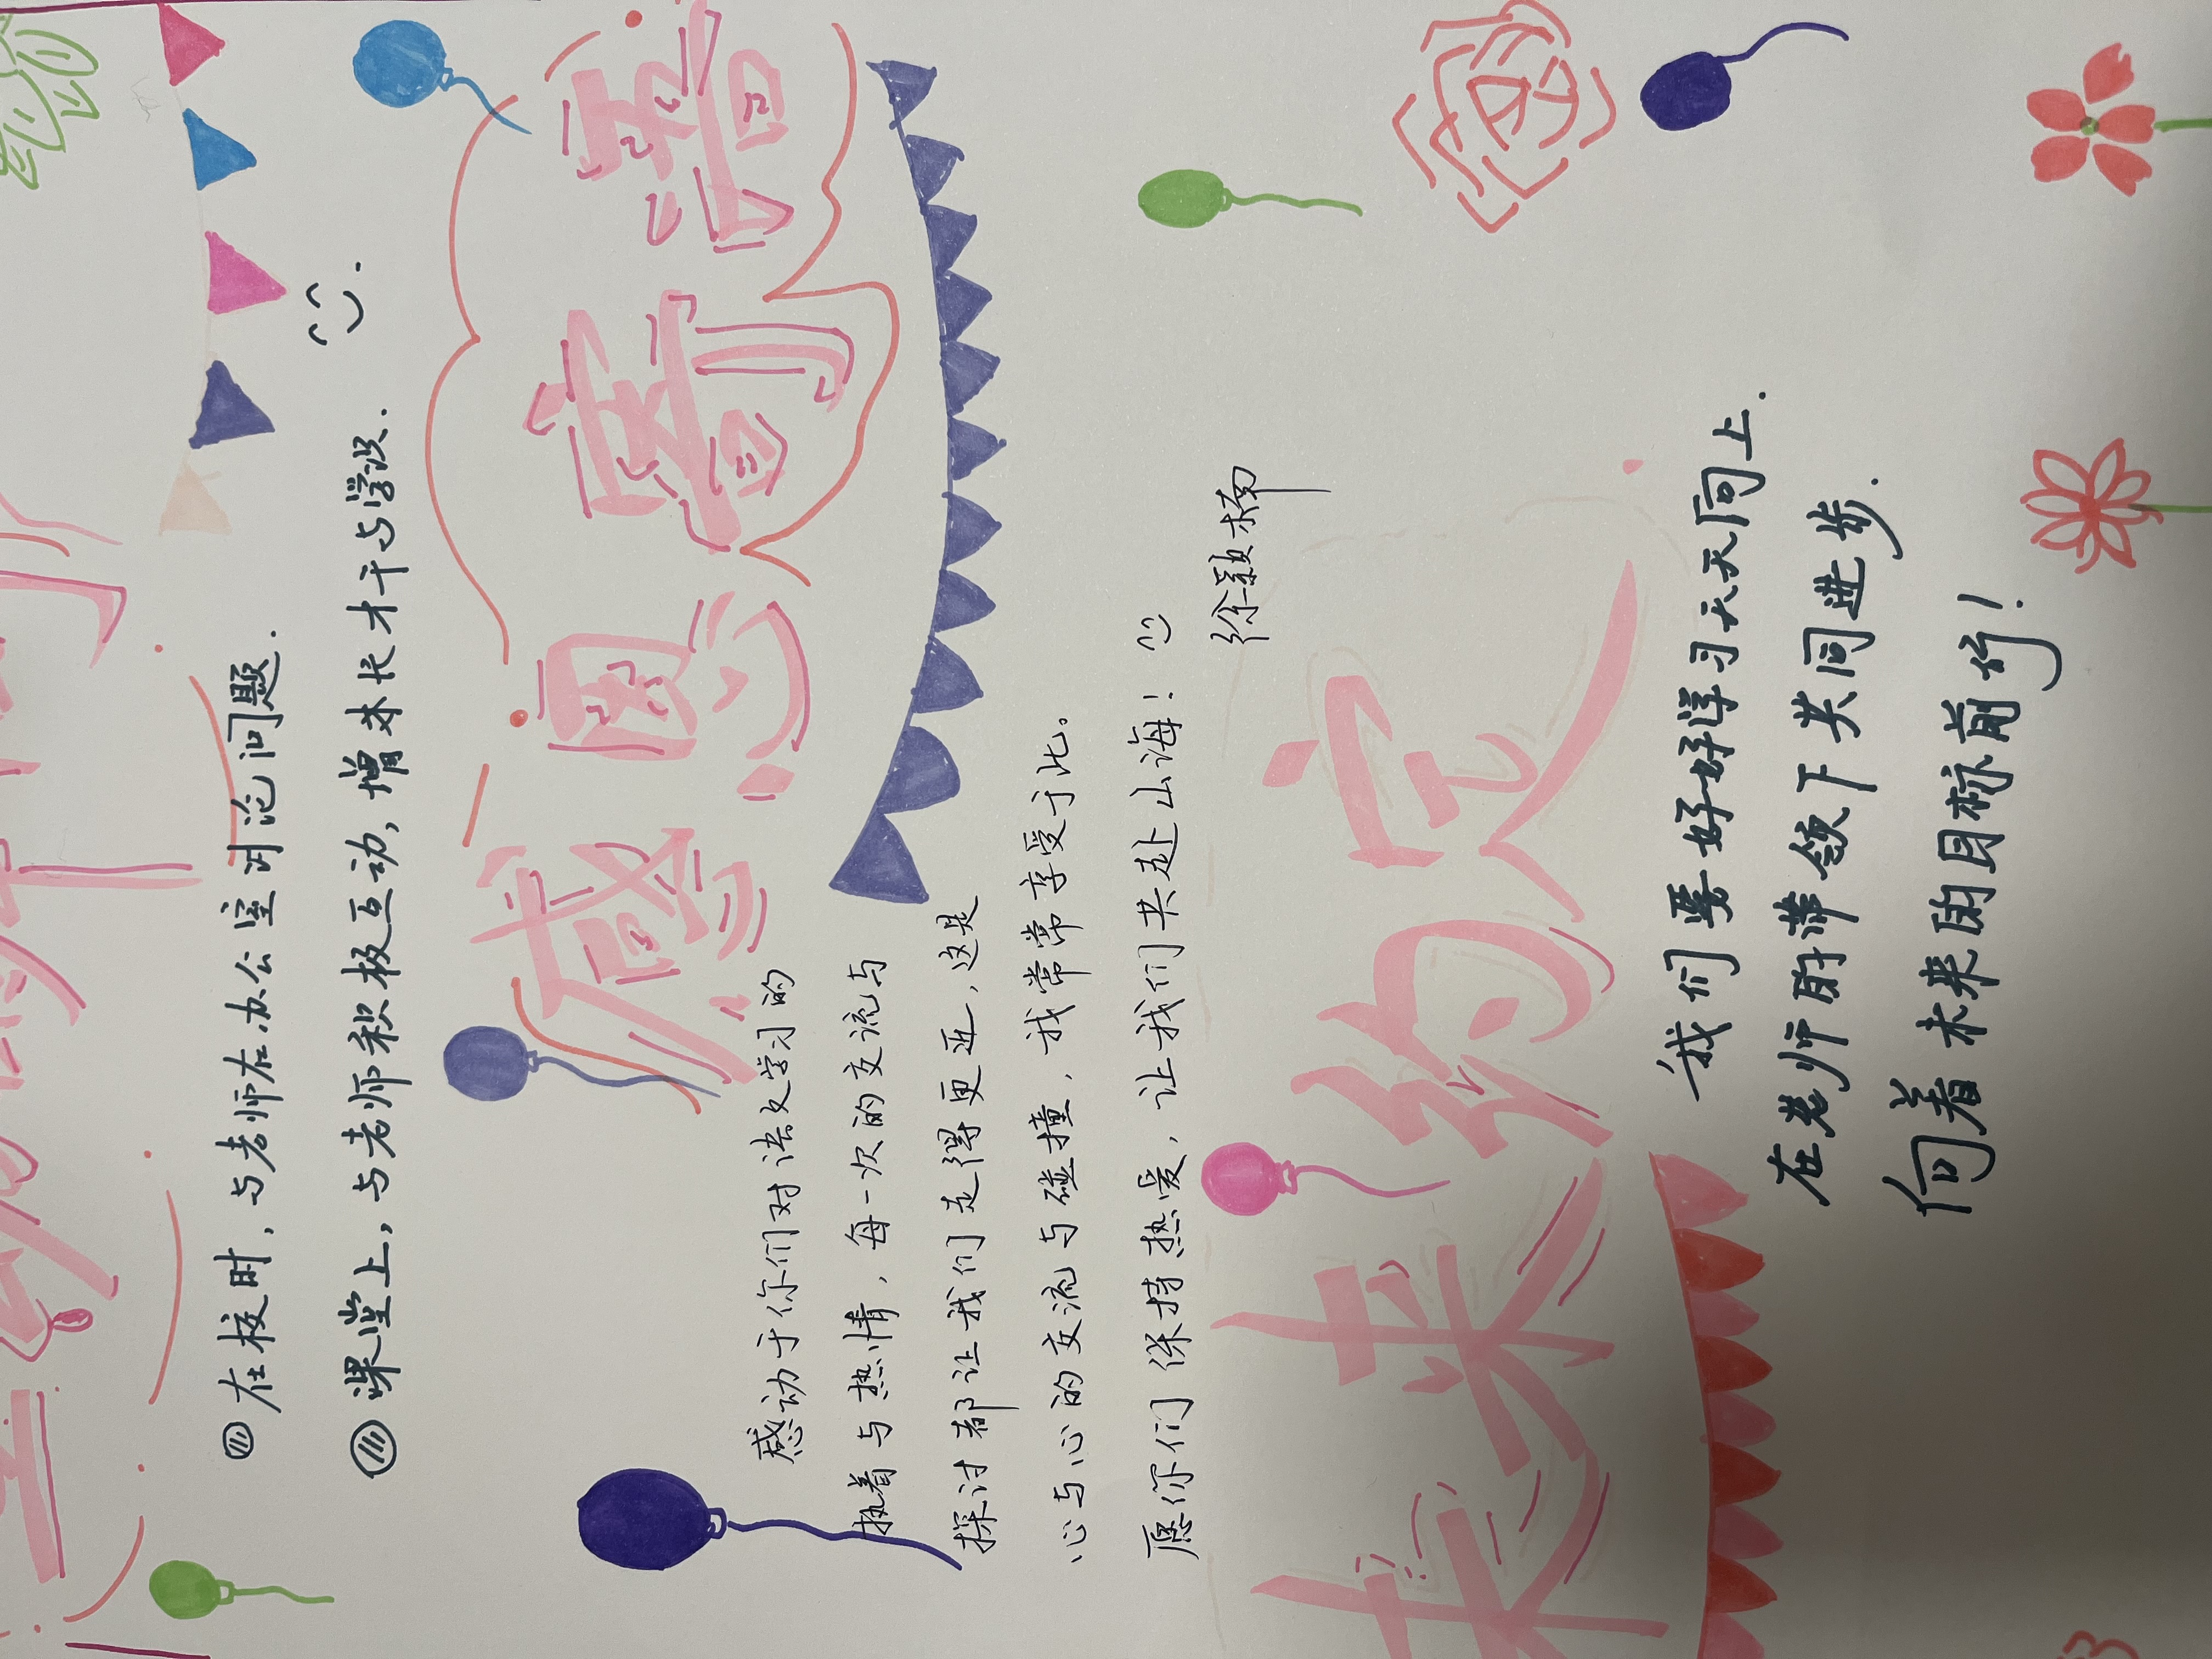 ②在校时，与老师在办公室讨论问题.
③课堂上，与老师积极互动，增本长才干与学识.
感恩寄语
感动于你们对语文学习的
执着与热情，每一次的交流与
探讨都让我们走得更近，这是
心与心的交流与碰撞，我常常享受于此。
愿你们保持热爱，让我们共赴山海！
徐颖楠
未来约定
我们要好好学习天天向上.
在老师的带领下共同进步.
向着未来的目标前行！